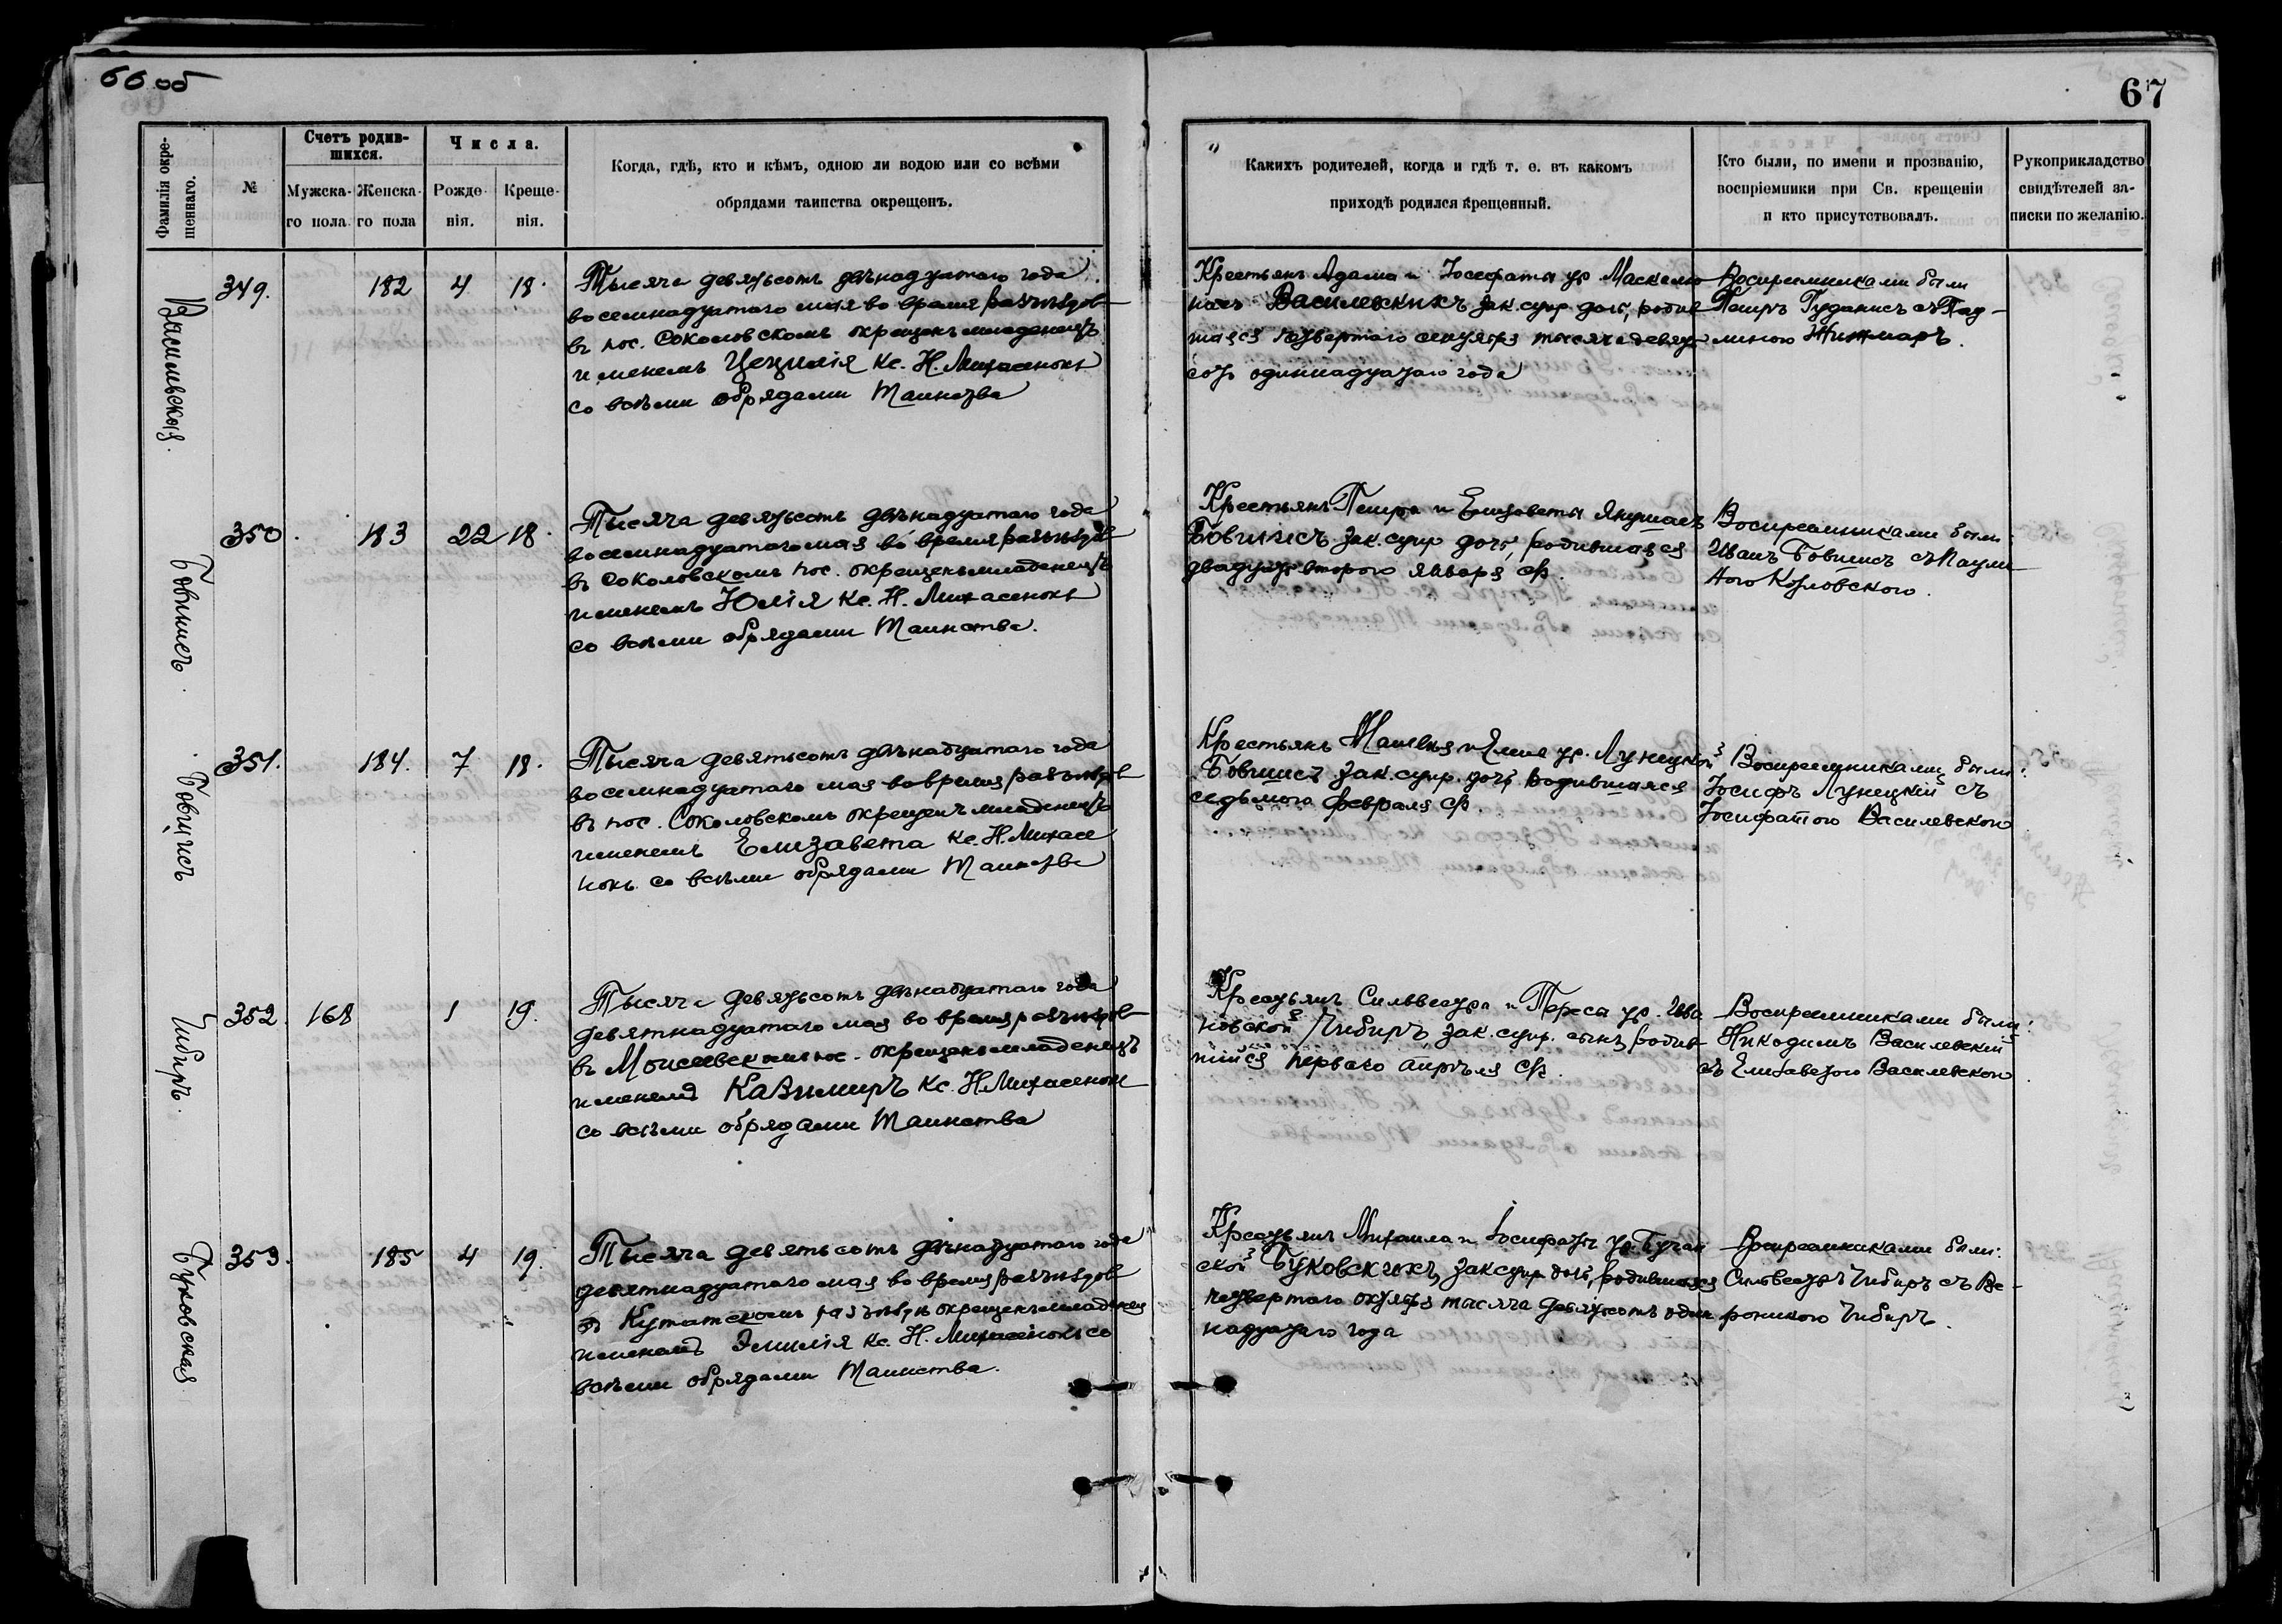 66 об
67
Фамилія окре-
щеннаго.
№
Счетъ родив-
шихся.
Мужска-
го пола.
Женска-
го пола
Числа.
Рожде-
нія.
Креще-
нія.
Когда, гдѣ, кто и кѣмъ, одною ли водою или со всѣми
обрядами таинства окрещенъ.
Какихъ родителей, когда и гдѣ т. е. въ какомъ
приходѣ родился крещенный.
Кто были, по имени и прозванію,
воспріемники при Св. крещеніи
и кто присутствовалъ.
Рукоприкладство
свидѣтелей за-
писки по желанію.
Василевская.
349.
182
4
18.
Тысяча девятьсотъ двѣнадцатаго года
восемнадцатаго мая во время разъѣздов
въ пос. Соколовскомъ окрещенъ младенецъ
именемъ Цецилія Кс. Н. Михасенокъ
со всѣми обрядами Таинства
Крестьянъ Адама и Іосефаты ур.
Василевскихъ зак. супр. дочь, родив
шаяся четвертаго тысяча девять
сотъ одиннадцатаго года
Воспреемниками были
Петръ съ Пав-
линою Жижмаръ.
Бовшисъ.
350.
183
22
18.
Тысяча девятьсотъ двѣнадцатаго года
восемнадцатаго мая во время разъѣздов
въ Соколовскомъ пос. окрещенъ младенецъ
именемъ Юлія Кс. Н. Михасенокъ
со всѣми обрядами Таинства.
Крестьянъ Петра и Елизаветы
Бовшисъ зак. супр. дочь, родившаяся
двадцать второго января ср.
Воспреемниками были:
Иванъ Бовшисъ съ Паули
ною Козловскою.
Бовшисъ
351.
184.
7
18.
Тысяча девятьсотъ двѣнадцатаго года
восемнадцатаго мая во время разъѣздов
въ пос. Соколовскомъ окрещенъ младенецъ
именемъ Елизавета Кс. Н. Михасе
нокъ со всѣми обрядами Таинства
Крестьянъ Матвѣя и ур. Лунецкой
Бовшисъ зак. супр. дочь, родившаяся
седьмого февраля ср.
Воспреемниками были:
Іосифъ Лунецкій съ
Іосифатою Василевскою
Чибиръ.
352.
168
1
19.
Тысяча девятьсотъ двѣнадцатаго года
девятнадцатаго мая во время разъѣздов
въ Моисеевскомъ пос. окрещенъ младенецъ
именемъ Казимиръ Кс. Н. Михасенокъ
со всѣми обрядами Таинства
Крестьянъ Сильвестра и Тересы ур. Ива
новской Чибиръ зак. супр. сынъ, родив
шійся перваго апрѣля ср.
Воспреемниками были:
Никодимъ Василевскій
съ Елизаветою Василевскою.
Буковская
353.
185
4
19.
Тысяча девятьсотъ двѣнадцатаго года
девятнадцатаго мая во время разъѣздов
въ окрещенъ младенец
именемъ Эмилія Кс. Н. Михасенокъ со
всѣми обрядами Таинства.
Крестьянъ Михаила и Іосифаты ур.
Буковскихъ, зак. супр. дочь, родившаяся
четвертаго октября тысяча девятьсотъ один
надцатаго года
Воспреемниками были:
Сильвестръ Чибиръ съ Ве-
роникою Чибиръ.